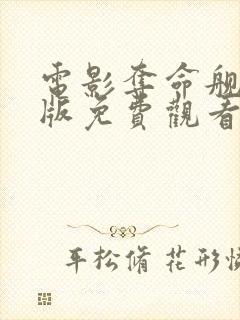 電影奪命舰
版免費觀看
平松脩 花形恆